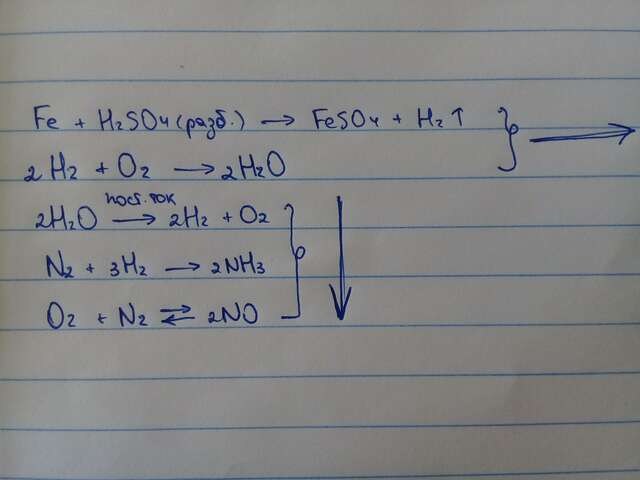 Fe + H₂SO₄ (разб.) → FeSO₄ + H₂↑
2H₂ + O₂ → 2H₂O
пост. ток
2H₂O → 2H₂ + O₂
N₂ + 3H₂ → 2NH₃
O₂ + N₂ ⇄ 2NO